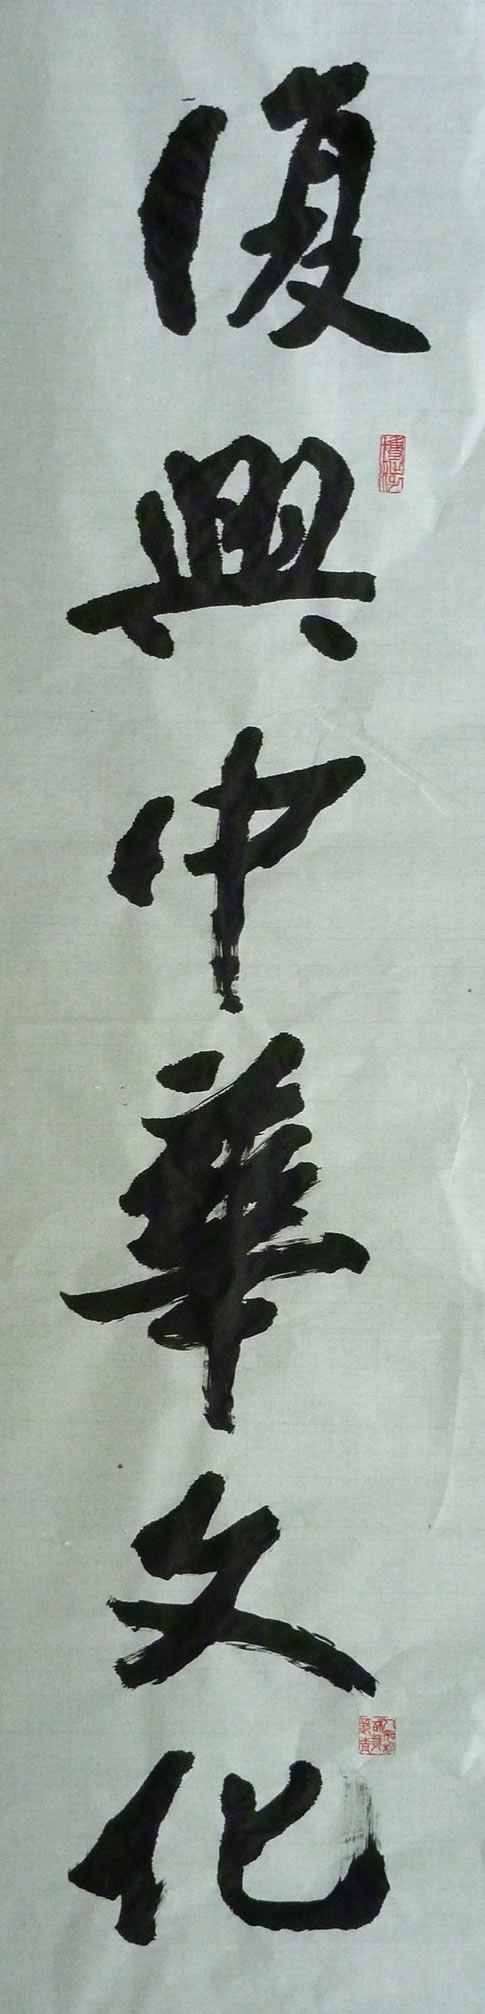 復興中華文化